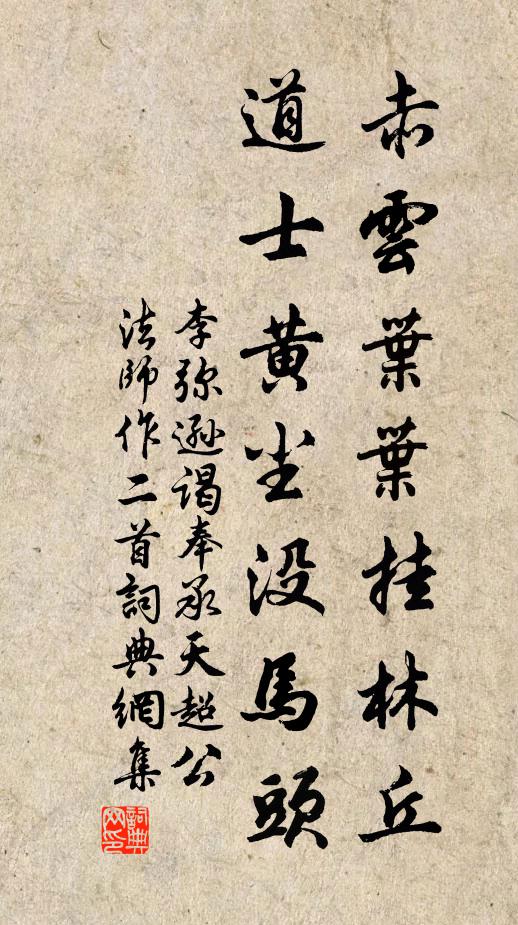 赤雲葉葉挂林丘
道士黄尘没馬頭
李弥遜謁奉承天超公
法師作二首詞典網集
詞典网印